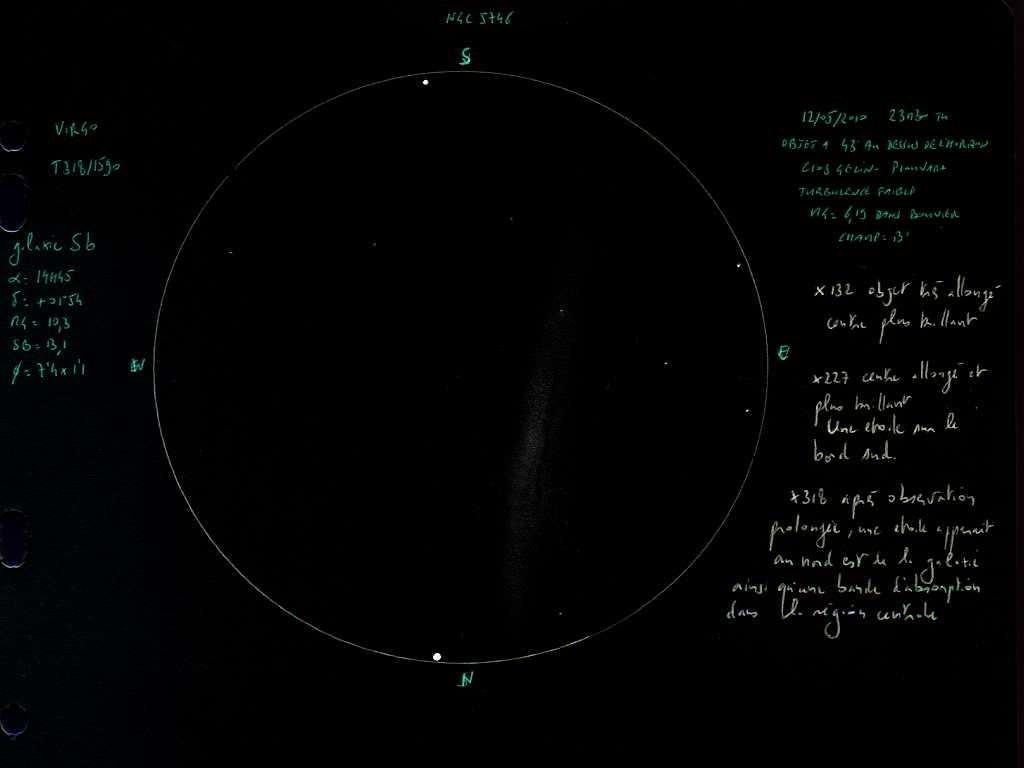 NGC 5746
S
VIRGO
T318/1590
galaxie Sb
α= 14H45
δ= +01°54
MG = 10,3
SB= 13,1
φ= 7'4 x 1'1
W
E
N
12/05/2010 23H30 TU
OBJET A 43° AU DESSUS DE L'HORIZON
TURBULENCE FAIBLE
MG= 6,19 DANS BOUVIER
CHAMP= 13'
x132 objet très allongé
centre plus brillant
x227 centre allongé et
plus brillant
Une étoile sur le
bord sud.
x318 après observation
prolongée, une étoile apparait
au nord est de la galaxie
ainsi qu'une bande d'absorption
dans la région centrale